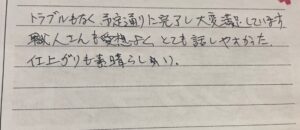 トラブルもなく予定通りに完了し大変満足しています
職人さんも愛想よく、とても話しやすかった。
仕上がりも素晴らしい。